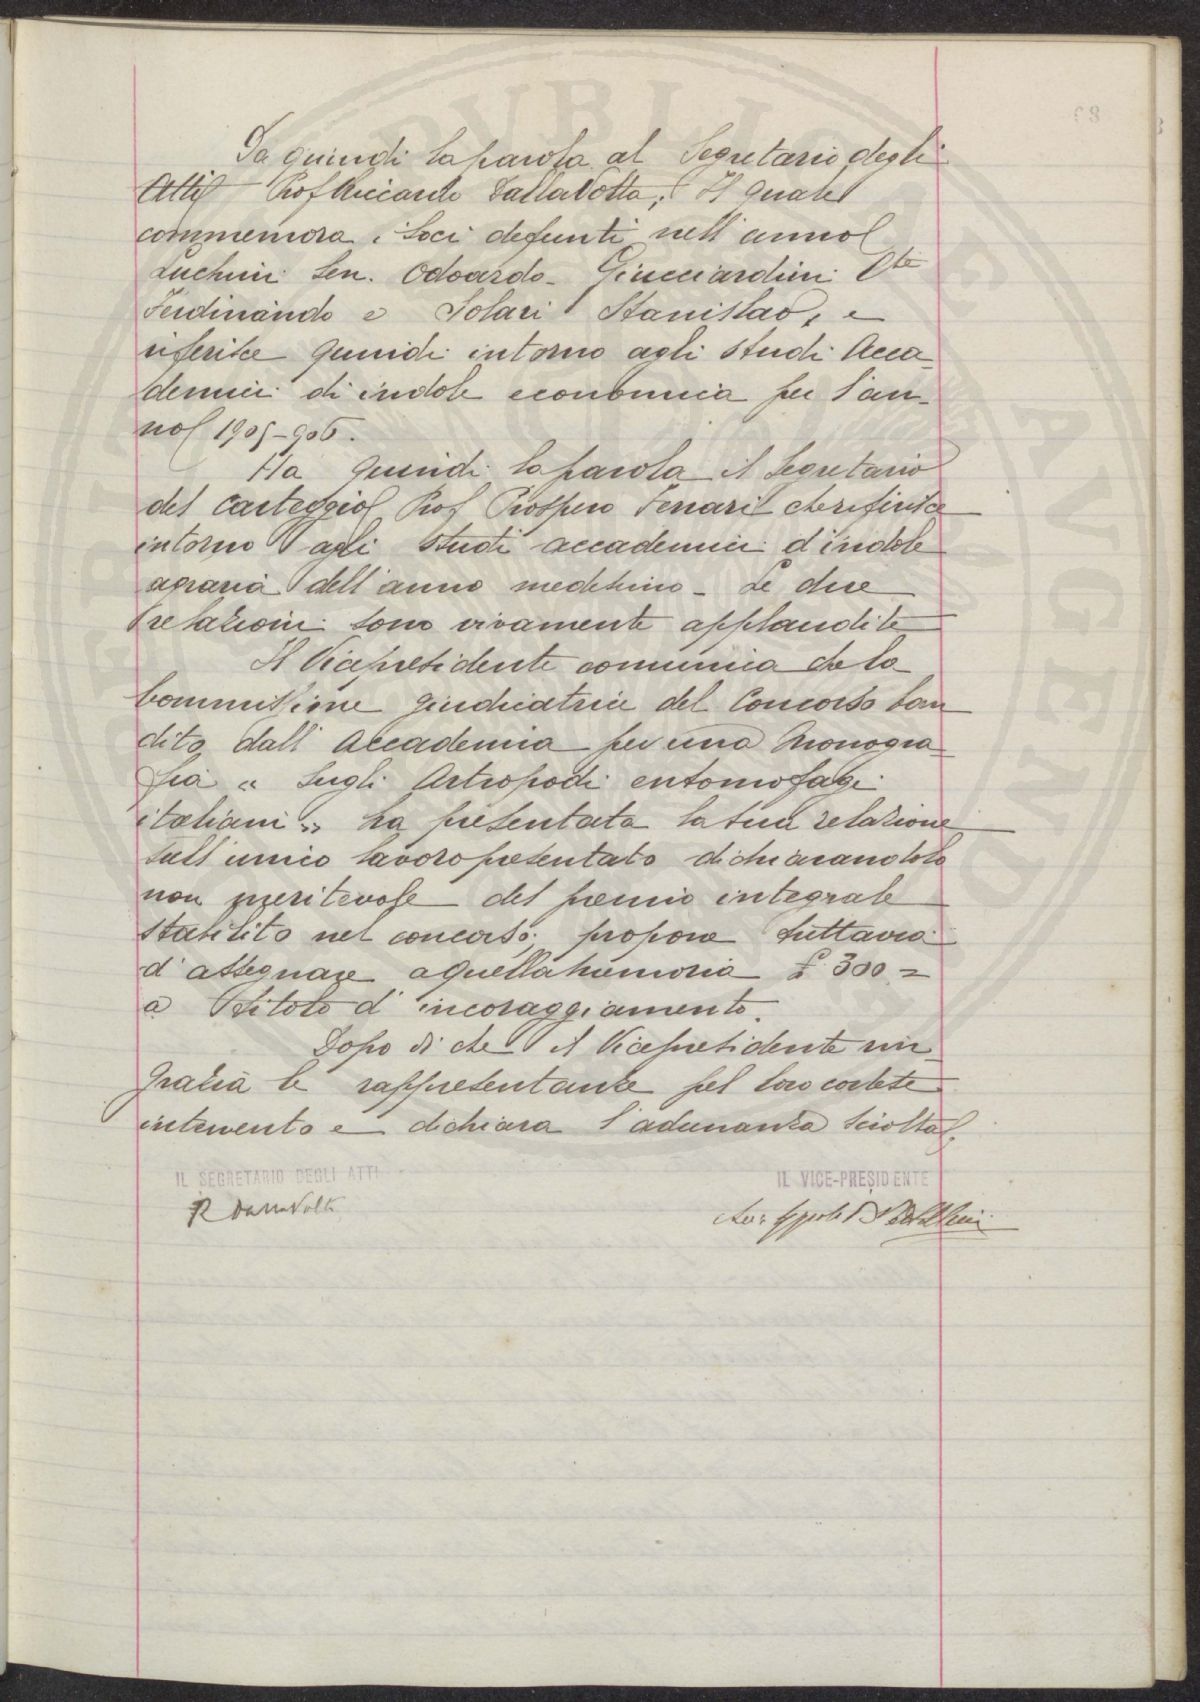 Da quindi la parola al Segretario degli
Atti Prof Riccardo DallaVolta, Il quale
commemora i Soci defunti nell'anno
Luchini Sen. Odoardo - Giucciardini Cte
Ferdinando e Solari Stanislao, e
riferisce quindi intorno agli studi Acca-
demici di indole economica per l'an-
no 1905-906.
Ha quindi la parola il Segretario
del Carteggio Prof Prospero Ferrari che riferisce
intorno agli studi accademici d'indole
agraria dell'anno medesimo - Le due
relazioni sono vivamente applaudite
Il Vicepresidente comunica che la
Commissione giudicatrice del Concorso ban
dito dall'Accademia per una Monogra-
fia " Sugli Artropodi entomofagi
italiani " ha presentata la sua relazione
sull'unico lavoro presentato dichiarandolo
non meritevole del premio integrale
stabilito nel concorso; propone tuttavia
d'assegnare a quella memoria £ 300 =
a titolo d'incoraggiamento.
Dopo di che il Vicepresidente rin-
grazia le rappresentanze pel loro cortese
intervento e dichiara l'adunanza sciolta.
IL SEGRETARIO DEGLI ATTI
IL VICE-PRESIDENTE
R DallaVolta